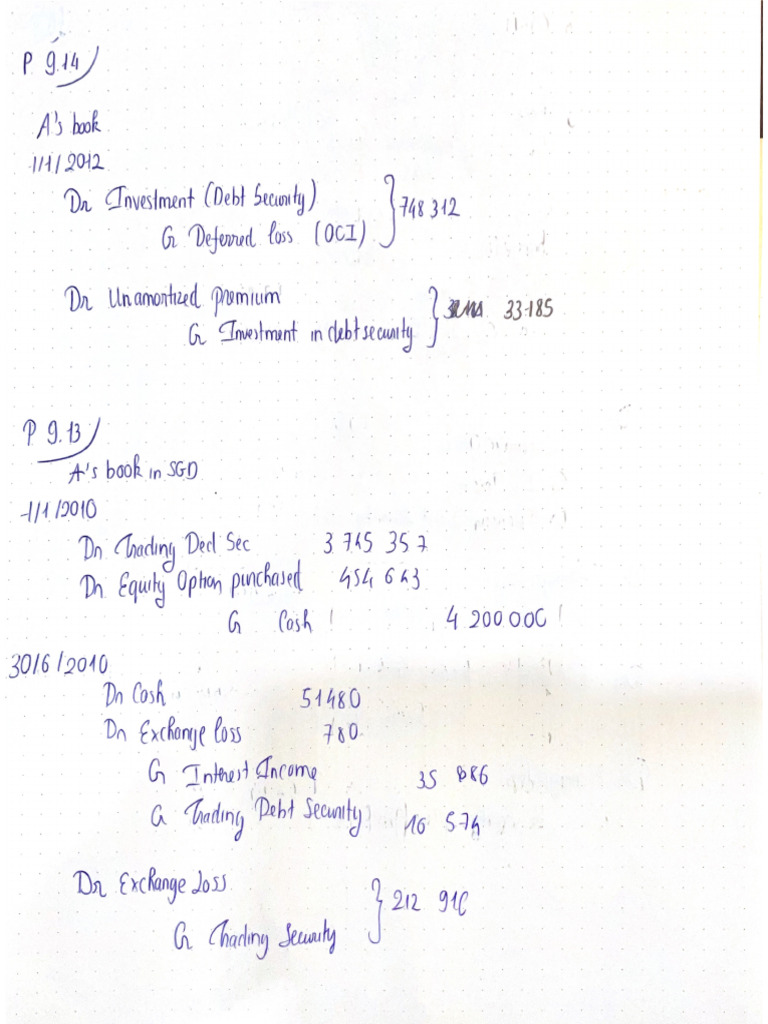 P 9.14
A's book
1/1/2012
Dr Investment (Debt Security) } 748 312
Cr Deferred loss (OCI)
Dr Unamortized premium } 33.185
Cr Investment in debt security
P 9.13
A's book in SGD
1/1/2010
Dr Trading Decl Sec 3 745 357
Dr Equity Option purchased 454 643
Cr Cash 4 200 000
30/6/2010
Dr Cash 51480
Dr Exchange loss 780
Cr Interest Income 35 686
Cr Trading Debt Security 16 574
Dr Exchange Loss } 212 910
Cr Trading Security